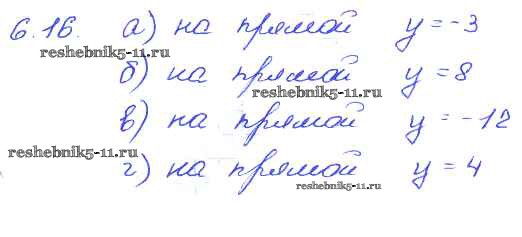 6.16. а) на прямой y = -3
reshebnik5-11.ru
б) на прямой y = 8
reshebnik5-11.ru
в) на прямой y = -12
reshebnik5-11.ru
г) на прямой y = 4
reshebnik5-11.ru